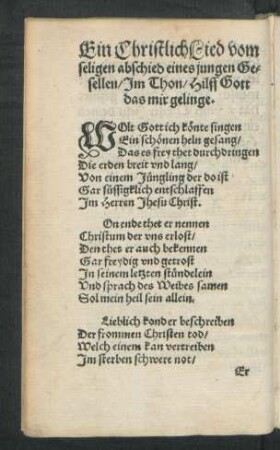 Ein Christlich Lied vom
seligen abschied eines jungen Ge-
sellen/ Im Thon/ Hilff Gott
das mir gelinge.
WOlt Gott ich könte singen
Ein schönen heln gesang/
Das es frey thet durchdringen
Die erden breit vnd lang/
Von einem Jüngling der do ist
Gar süssigklich entschlaffen
Im Herren Jhesu Christ.
On ende thet er nennen
Christum der vns erlost/
Den thet er auch bekennen
Gar freydig vnd getrost
In seinem letzten stündelein
Vnd sprach des Weibes samen
Sol mein heil sein allein.
Lieblich kond er beschreiben
Der frommen Christen tod/
Welch einem kan vertreiben
Im sterben schwere not/
Er